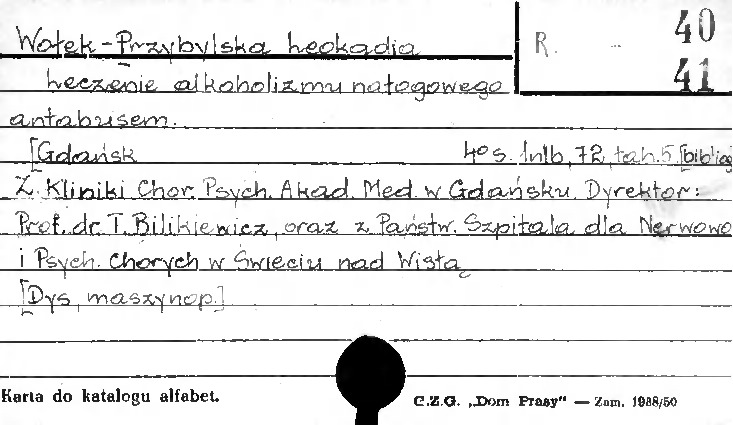 Wołek-Przybylska Leokadia
R. - 40
41
Leczenie alkoholizmu nałogowego
antabusem.
[Gdańsk 4° s. lnlb, 72, tab. 5 [bibliog
Z Kliniki Chor. Psych. Akad. Med. w Gdańsku. Dyrektor:
Prof. dr. T. Bilikiewicz, oraz z Państw. Szpitala dla Nerwowo
i Psych. Chorych w Świeciu nad Wisłą
[Dys, maszynop.]
Karta do katalogu alfabet.
C.Z.G. „Dom Prasy" — Zam. 1988/50